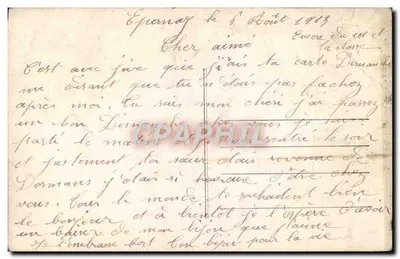 Epernay le 5 Août 1913
Cher aimé
encore du 101 et
la classe
C'est avec joie que j'ais ta carte Dimanche
me disant que tu n'étais pas fachez
après moi. Tu sais mon chéri j'ai passez
un bon Dimanche je suis
parté le matin rentré le soir
et justement ta sœur étais revenue de
Dormans j'étais si heureuse d'être chez
vous. Tous le monde te souhaitent bien
le bonjour et à bientôt je l'espère d'avoir
un baiser de mon bijou que j'aime
Je t'embrasse fort ton bijou pour la vie
CPAPHIL